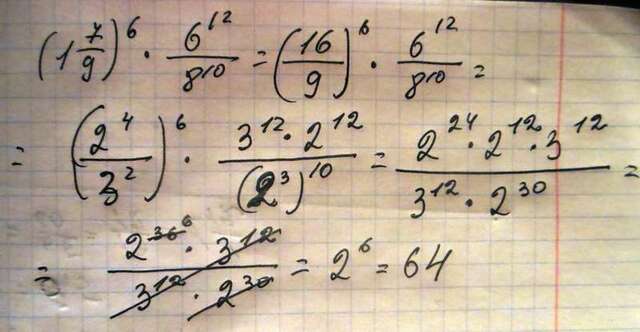 (1 7/9)^6 · 6^12/8^10 = (16/9)^6 · 6^12/8^10 =
= (2^4/3^2)^6 · 3^12·2^12/(2^3)^10 = 2^24·2^12·3^12/3^12·2^30 =
= 2^36 6 · 3^12/3^12 · 2^30 = 2^6 = 64